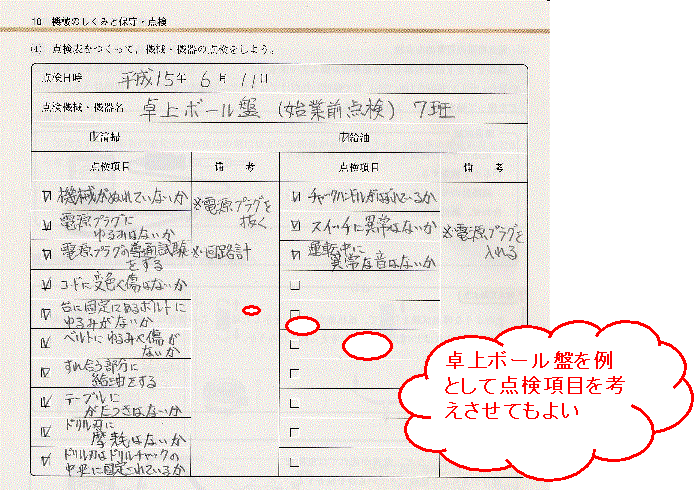 10 機械のしくみと保守・点検
(4) 点検表をつくって，機械・機器の点検をしよう。
点検日時 平成15年 6月 11日
点検機械・機器名 卓上ボール盤 (始業前点検) 7班
点検項目 備考 点検項目 備考
機械がぬれていないか
※電源プラグを
抜く
電源プラグに
ゆるみはないか
電源プラグの導通試験
をする
※・回路計
コードに変色や傷はないか
台に固定にあるボルトに
ゆるみがないか
ベルトにゆるみや傷が
ないか
すれ合う部分に
給油をする
テーブルに
がたつきはないか
ドリル刃に
摩耗はないか
ドリル刃はドリルチャックの
中央に固定されているか
チャックハンドルがはずれているか
スイッチに異常はないか
※電源プラグを
入れる
運転中に
異常な音はないか
卓上ボール盤を例
として点検項目を考
えさせてもよい